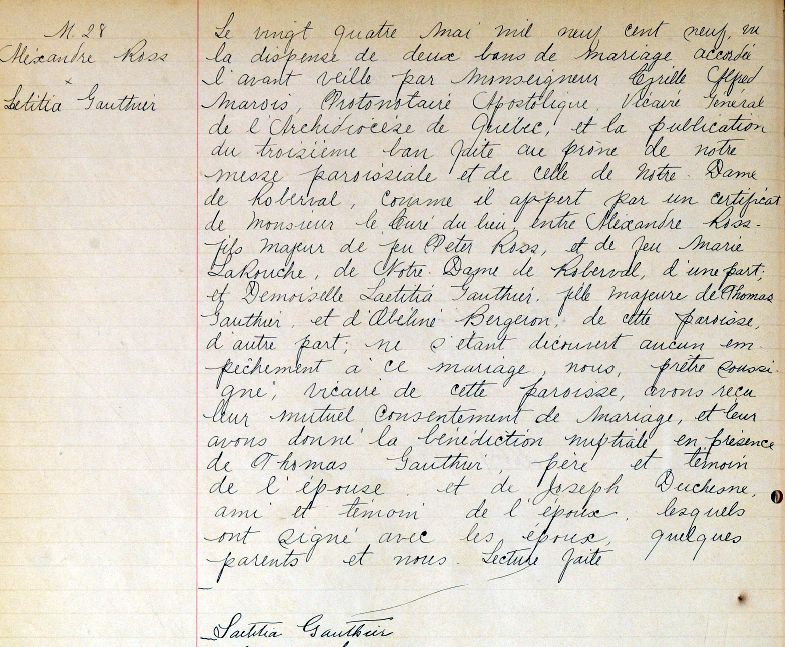 M. 28
Alexandre Ross
x
Laetitia Gauthier
Le vingt quatre Mai mil neuf cent neuf, vu
la dispense de deux bans de mariage accordée
l'avant veille par Monseigneur Cyrille Alfred
Marois, Protonotaire Apostolique, Vicaire Général
de l'Archidiocèse de Québec, et la publication
du troisième ban faite au prône de notre
messe paroissiale et de celle de Notre-Dame
de Roberval, comme il appert par un certificat
de Monsieur le Curé du lieu, entre Alexandre Ross-
fils majeur de feu Peter Ross, et de feu Marie
LaRouche, de Notre-Dame de Roberval, d'une part;
et Demoiselle Laetitia Gauthier, fille majeure de Thomas
Gauthier, et d'Obéline Bergeron, de cette paroisse,
d'autre part; ne s'étant découvert aucun em-
pêchement à ce mariage, nous, prêtre soussi-
gné, vicaire de cette paroisse, avons reçu
leur mutuel consentement de mariage, et leur
avons donné la bénédiction nuptiale en présence
de Thomas Gauthier, père et témoin
de l'épouse, et de Joseph Duchesne,
ami et témoin de l'époux, lesquels
ont signé avec les époux, quelques
parents et nous. Lecture faite
Laetitia Gauthier